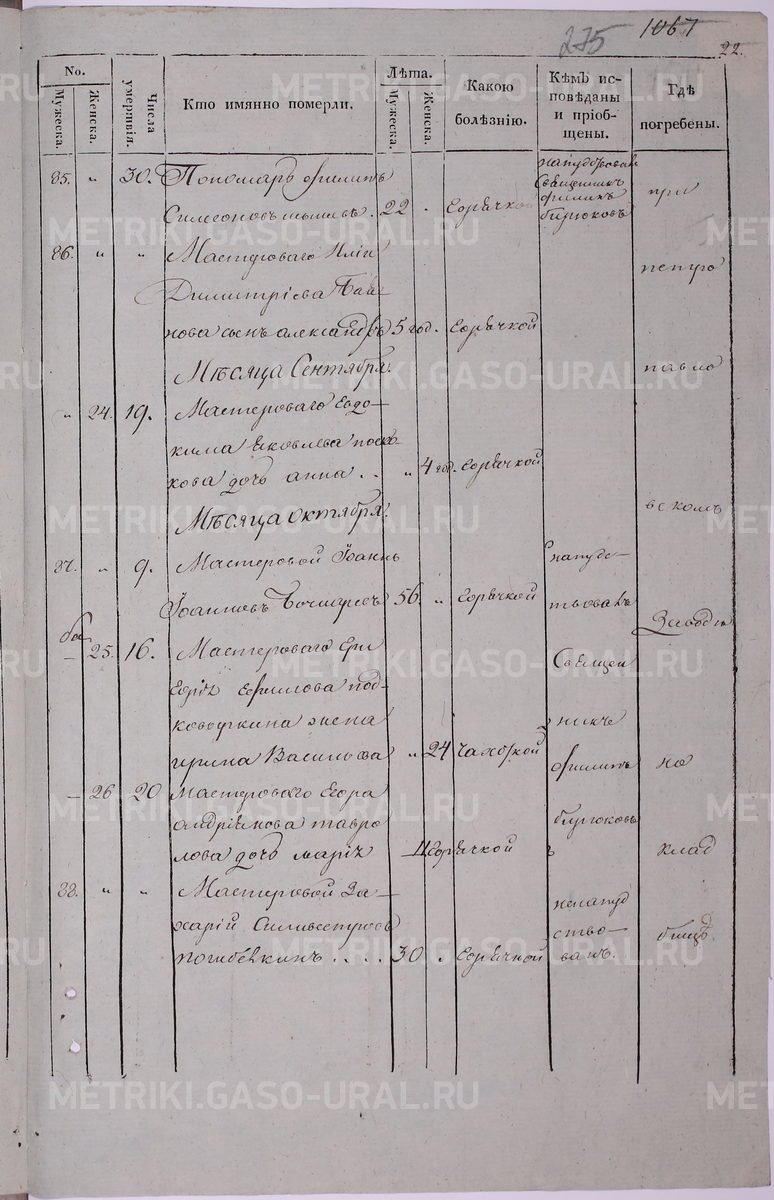 275
1067
22.
No.
Лѣта.
Мужеска.
Женска.
Числа умершвія.
Кто имянно померли.
Мужеска.
Женска.
Какою болѣзнію.
Кѣмъ исповѣданы и пріобщены.
Гдѣ погребены.
85. " 30. Пономарь Филипъ
Симеоновъ 22 . Горячкой
Священникъ Филипъ Бирюковъ
при
86. " " Мастероваго Иліи
Димитріева
нова сынъ александръ 5 год. Горячкой
петро
Мѣсяца Сентября.
павло
" 24. 19. Мастероваго Евдо-
кима Яковлева
кова дочь анна . . " 4 год. Горячкой
Мѣсяца октября.
вскомъ
87. " 9. Мастеровой Іоаннъ
Іоанновъ 56. " Горячкой
напутс-
твованъ
Заводѣ
25. 16. Мастероваго Гри
горія Ефимова под-
ковыркина жена
ирина Васильева " 24 Чахоткой
Священ
никъ
Филипъ
на
26 20 Мастероваго Егора
андріянова тавро
лова дочь марія Горячкой
Бирюковъ
клад
88. " " Мастеровой За-
харій Силивестровъ
погибѣлкинъ . . . . 30 . Горячкой
ненапуд
ство-
ванъ.
бищѣ
METRIKI.GASO-URAL.RU